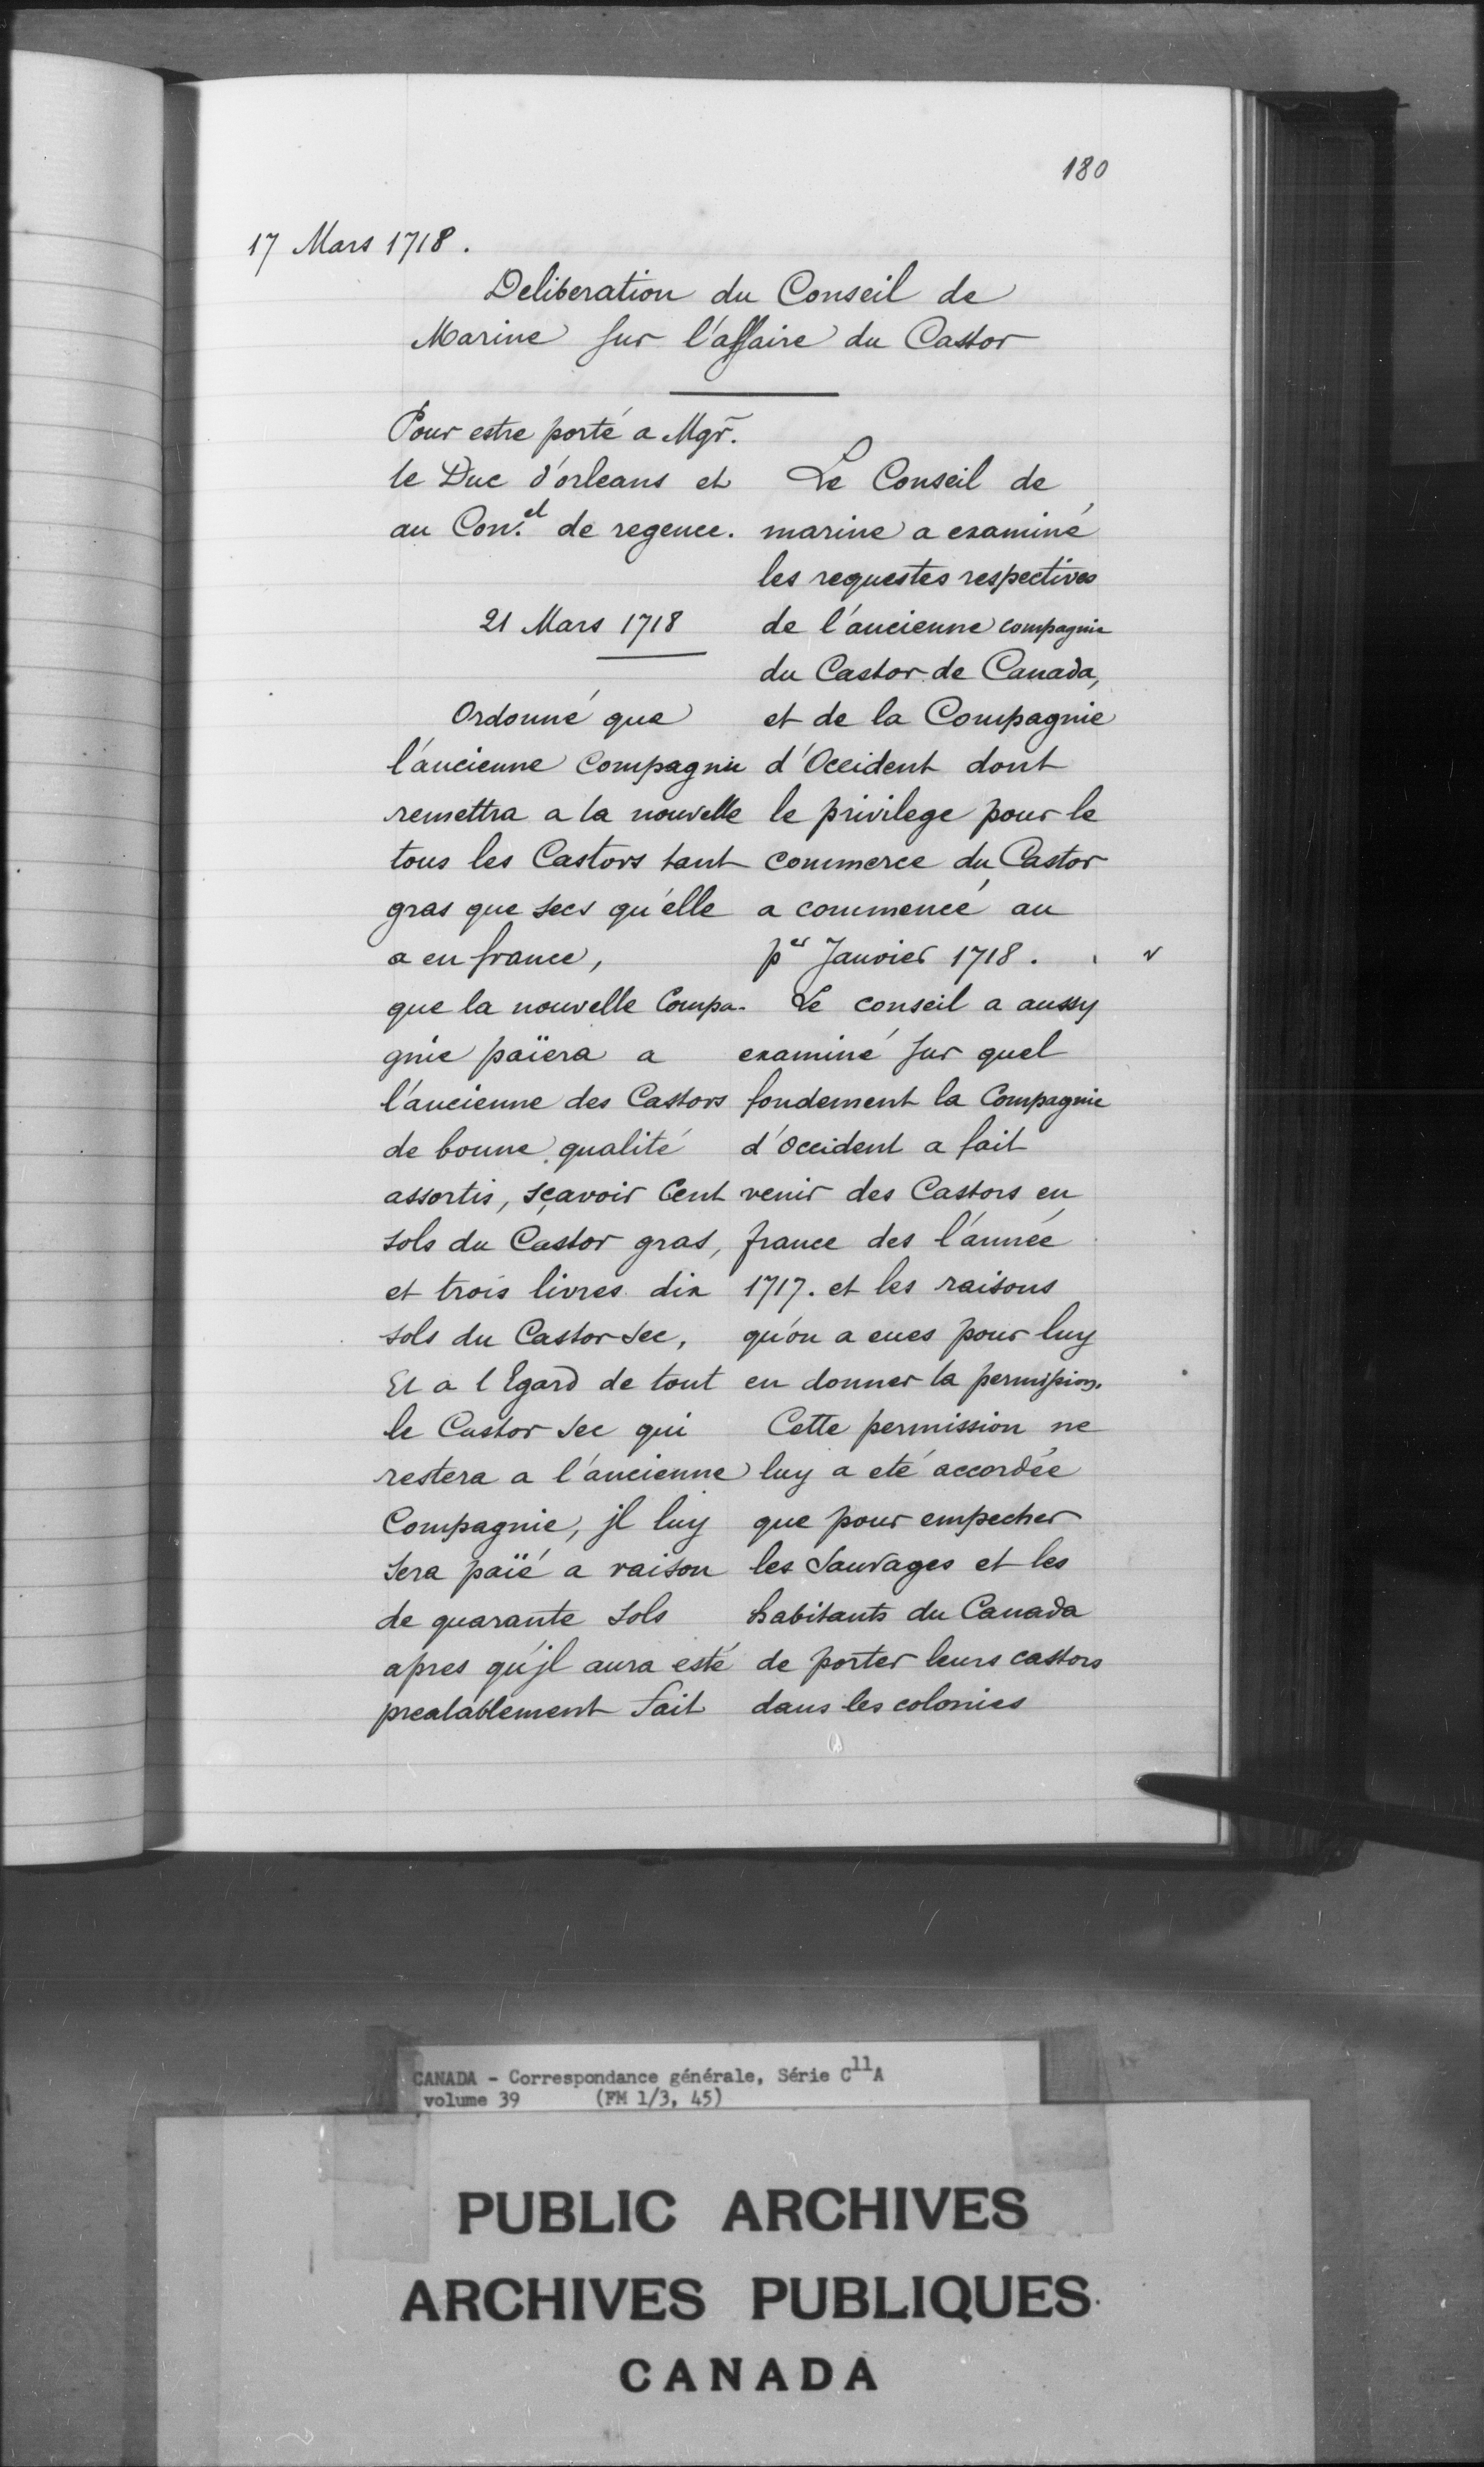 180
17 Mars 1718.
Deliberation du Conseil de
Marine sur l'affaire du Castor
Pour estre porté a Mgr.
le Duc d'orleans et
au Con.el de regence.
21 Mars 1718
Ordonné que
l'ancienne Compagnie
remettra a la nouvelle
tous les Castors tant
gras que secs qu'elle
a en france,
que la nouvelle Compa-
gnie païera a
l'ancienne des Castors
de bonne qualité
assortis, sçavoir Cent
sols du Castor gras,
et trois livres dix
sols du Castor sec,
Et a l Egard de tout
le Castor sec qui
restera a l'ancienne
Compagnie, jl luy
sera païé a raison
de quarante sols
apres qu'jl aura esté
prealablement fait
Le Conseil de
marine a examiné
les requestes respectives
de l'ancienne compagnie
du Castor de Canada,
et de la Compagnie
d'Occident dont
le privilege pour le
commerce du Castor
a commencé au
per Janvier 1718.
Le conseil a aussy
examiné sur quel
fondement la Compagnie
d'occident a fait
venir des Castors en
france des l'année
1717. et les raisons
qu'on a eues pour luy
en donner la permission.
Cette permission ne
luy a eté accordée
que pour empecher
les Sauvages et les
habitants du Canada
de porter leurs castors
dans les colonies
CANADA - Correspondance générale, Série C11A
volume 39 (FM 1/3, 45)
PUBLIC ARCHIVES
ARCHIVES PUBLIQUES
CANADA